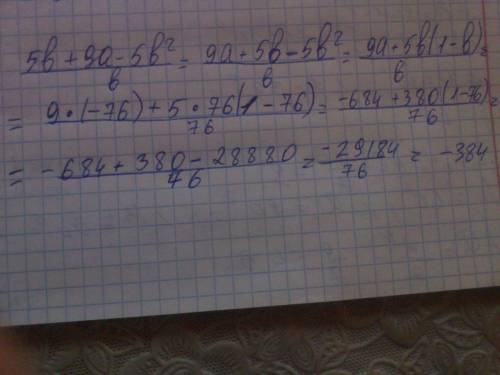 (5в + 9а - 5в²)/в = (9а + 5в - 5в²)/в = (9а + 5в(1 - в))/в =
= (9 · (-76) + 5 · 76(1 - 76))/76 = (-684 + 380(1 - 76))/76 =
= (-684 + 380 - 28880)/76 = (-29184)/76 = -384